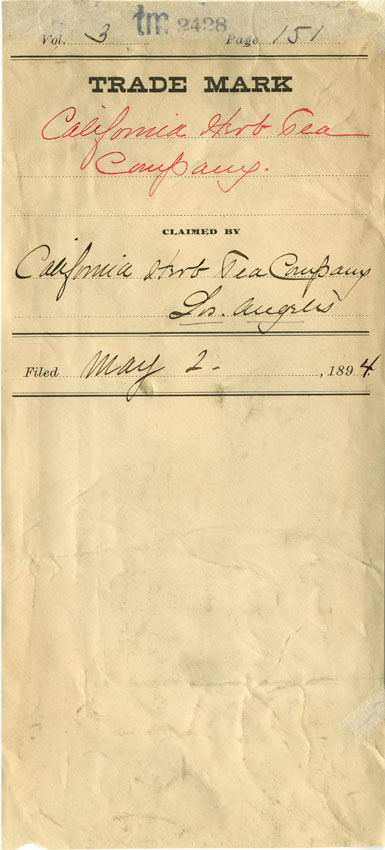 tm 2428
Vol. 3 Page 151
TRADE MARK
California Herb Tea
Company.
CLAIMED BY
California Herb Tea Company
Los. Angeles
Filed May 2. , 1894.